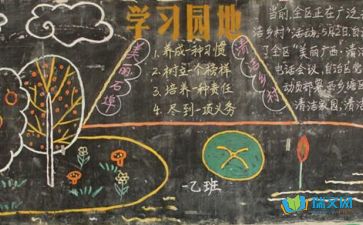 学习园地
美丽石埠
清洁乡村
1. 养成一种习惯
2. 树立一个榜样
3. 培养一种责任
4. 尽到一项义务
当前,全区正在广泛
洁乡村"活动,5月2日,自治
了全区"美丽广西·清洁
电话会议,自治区党
清洁家园、清洁
乙班
瑞文网